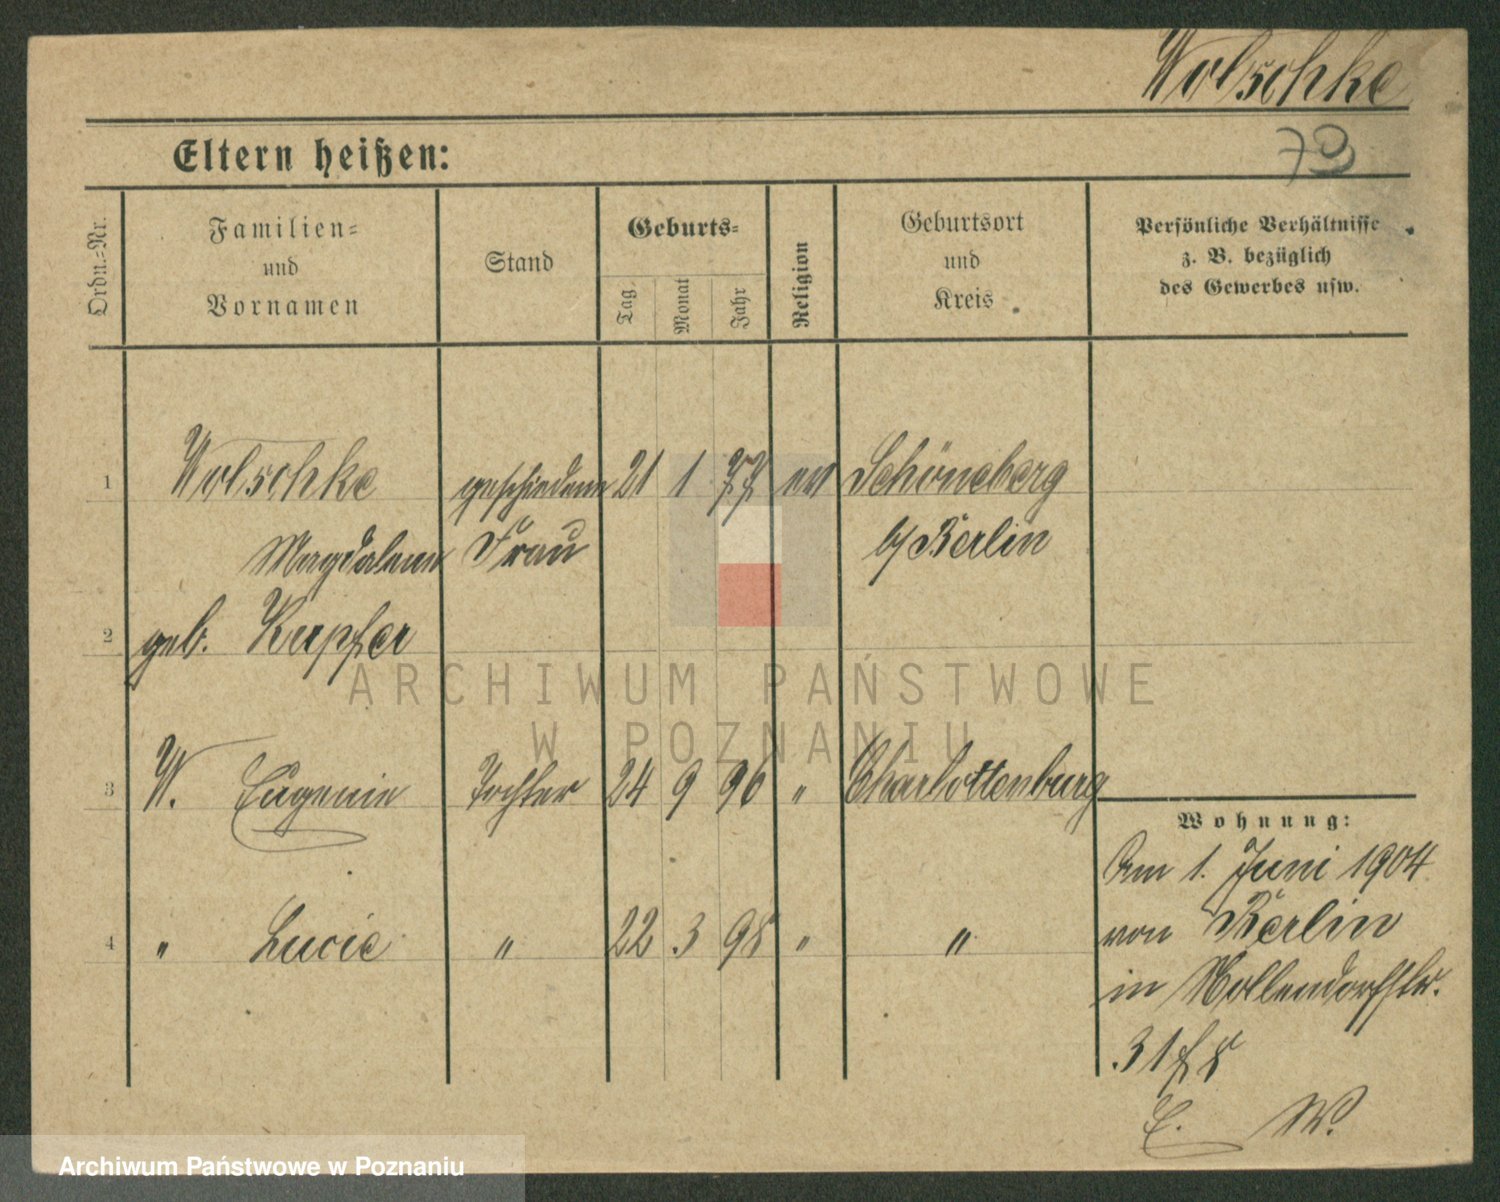 Wolschke
73
Eltern heißen:
Ordn.-Nr.
Familien-
und
Vornamen
Stand
Geburts-
Tag
Monat
Jahr
Religion
Geburtsort
und
Kreis
Persönliche Verhältnisse
z. B. bezüglich
des Gewerbes usw.
1 Wolschke geschiedene 21 1 77 ev Schöneberg
Magdalene Frau b/Berlin
2 geb. Kupfer
3 W. Eugenie Tochter 24 9 96 " Charlottenburg
Wohnung:
Am 1. Juni 1904
von Berlin
4 " Lucie " 22 3 98 " "
in Mollendorfstr.
31
E. W.
ARCHIWUM PAŃSTWOWE
W POZNANIU
Archiwum Państwowe w Poznaniu